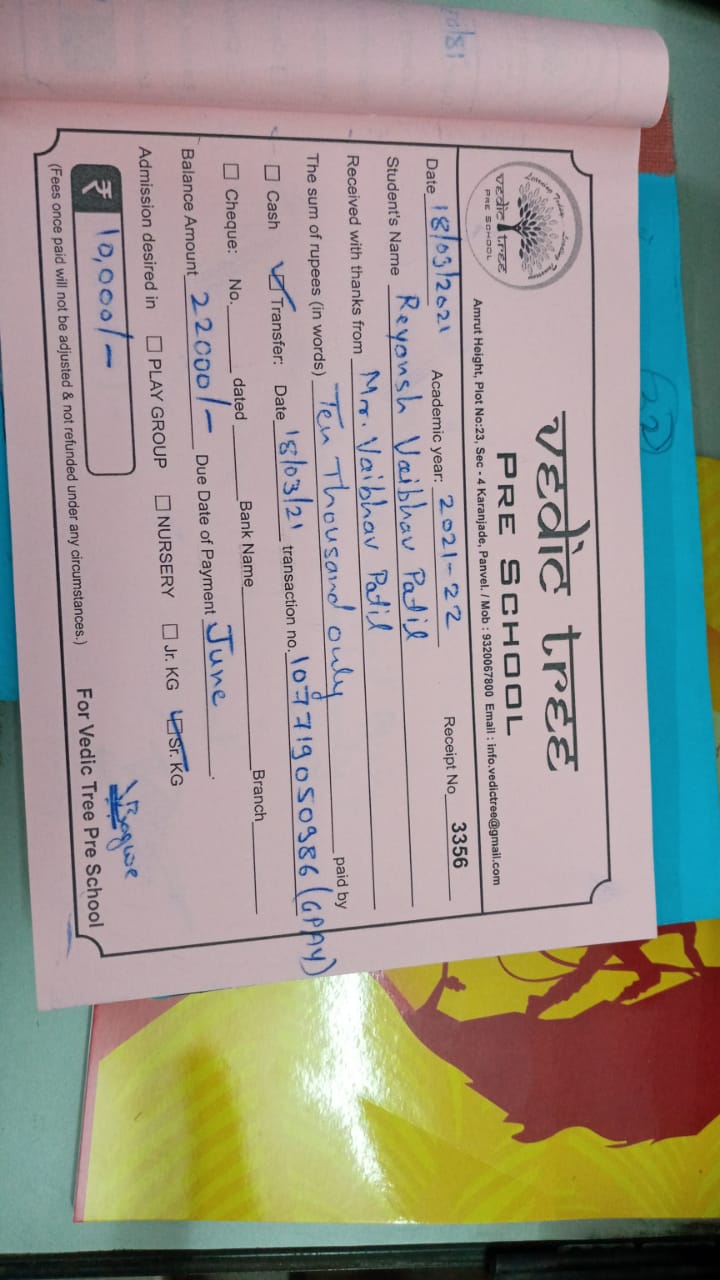 vedic tree
PRE SCHOOL
vedic tree
PRE SCHOOL
Amrut Height, Plot No:23, Sec - 4 Karanjade, Panvel. / Mob : 9320067800 Email : info.vedictree@gmail.com
Date 18/03/2021 Academic year: 2021-22 Receipt No 3356
Student's Name Reyansh Vaibhav Patil
Received with thanks from Mr. Vaibhav Patil
The sum of rupees (in words) Ten Thousand only paid by
Cash Transfer: Date 18/03/21 transaction no. 107719050986 (GPAY)
Cheque: No. dated Bank Name Branch
Balance Amount 22000/- Due Date of Payment June
Admission desired in PLAY GROUP NURSERY Jr. KG Sr. KG
₹ 10,000/-
(Fees once paid will not be adjusted & not refunded under any circumstances.)
For Vedic Tree Pre School